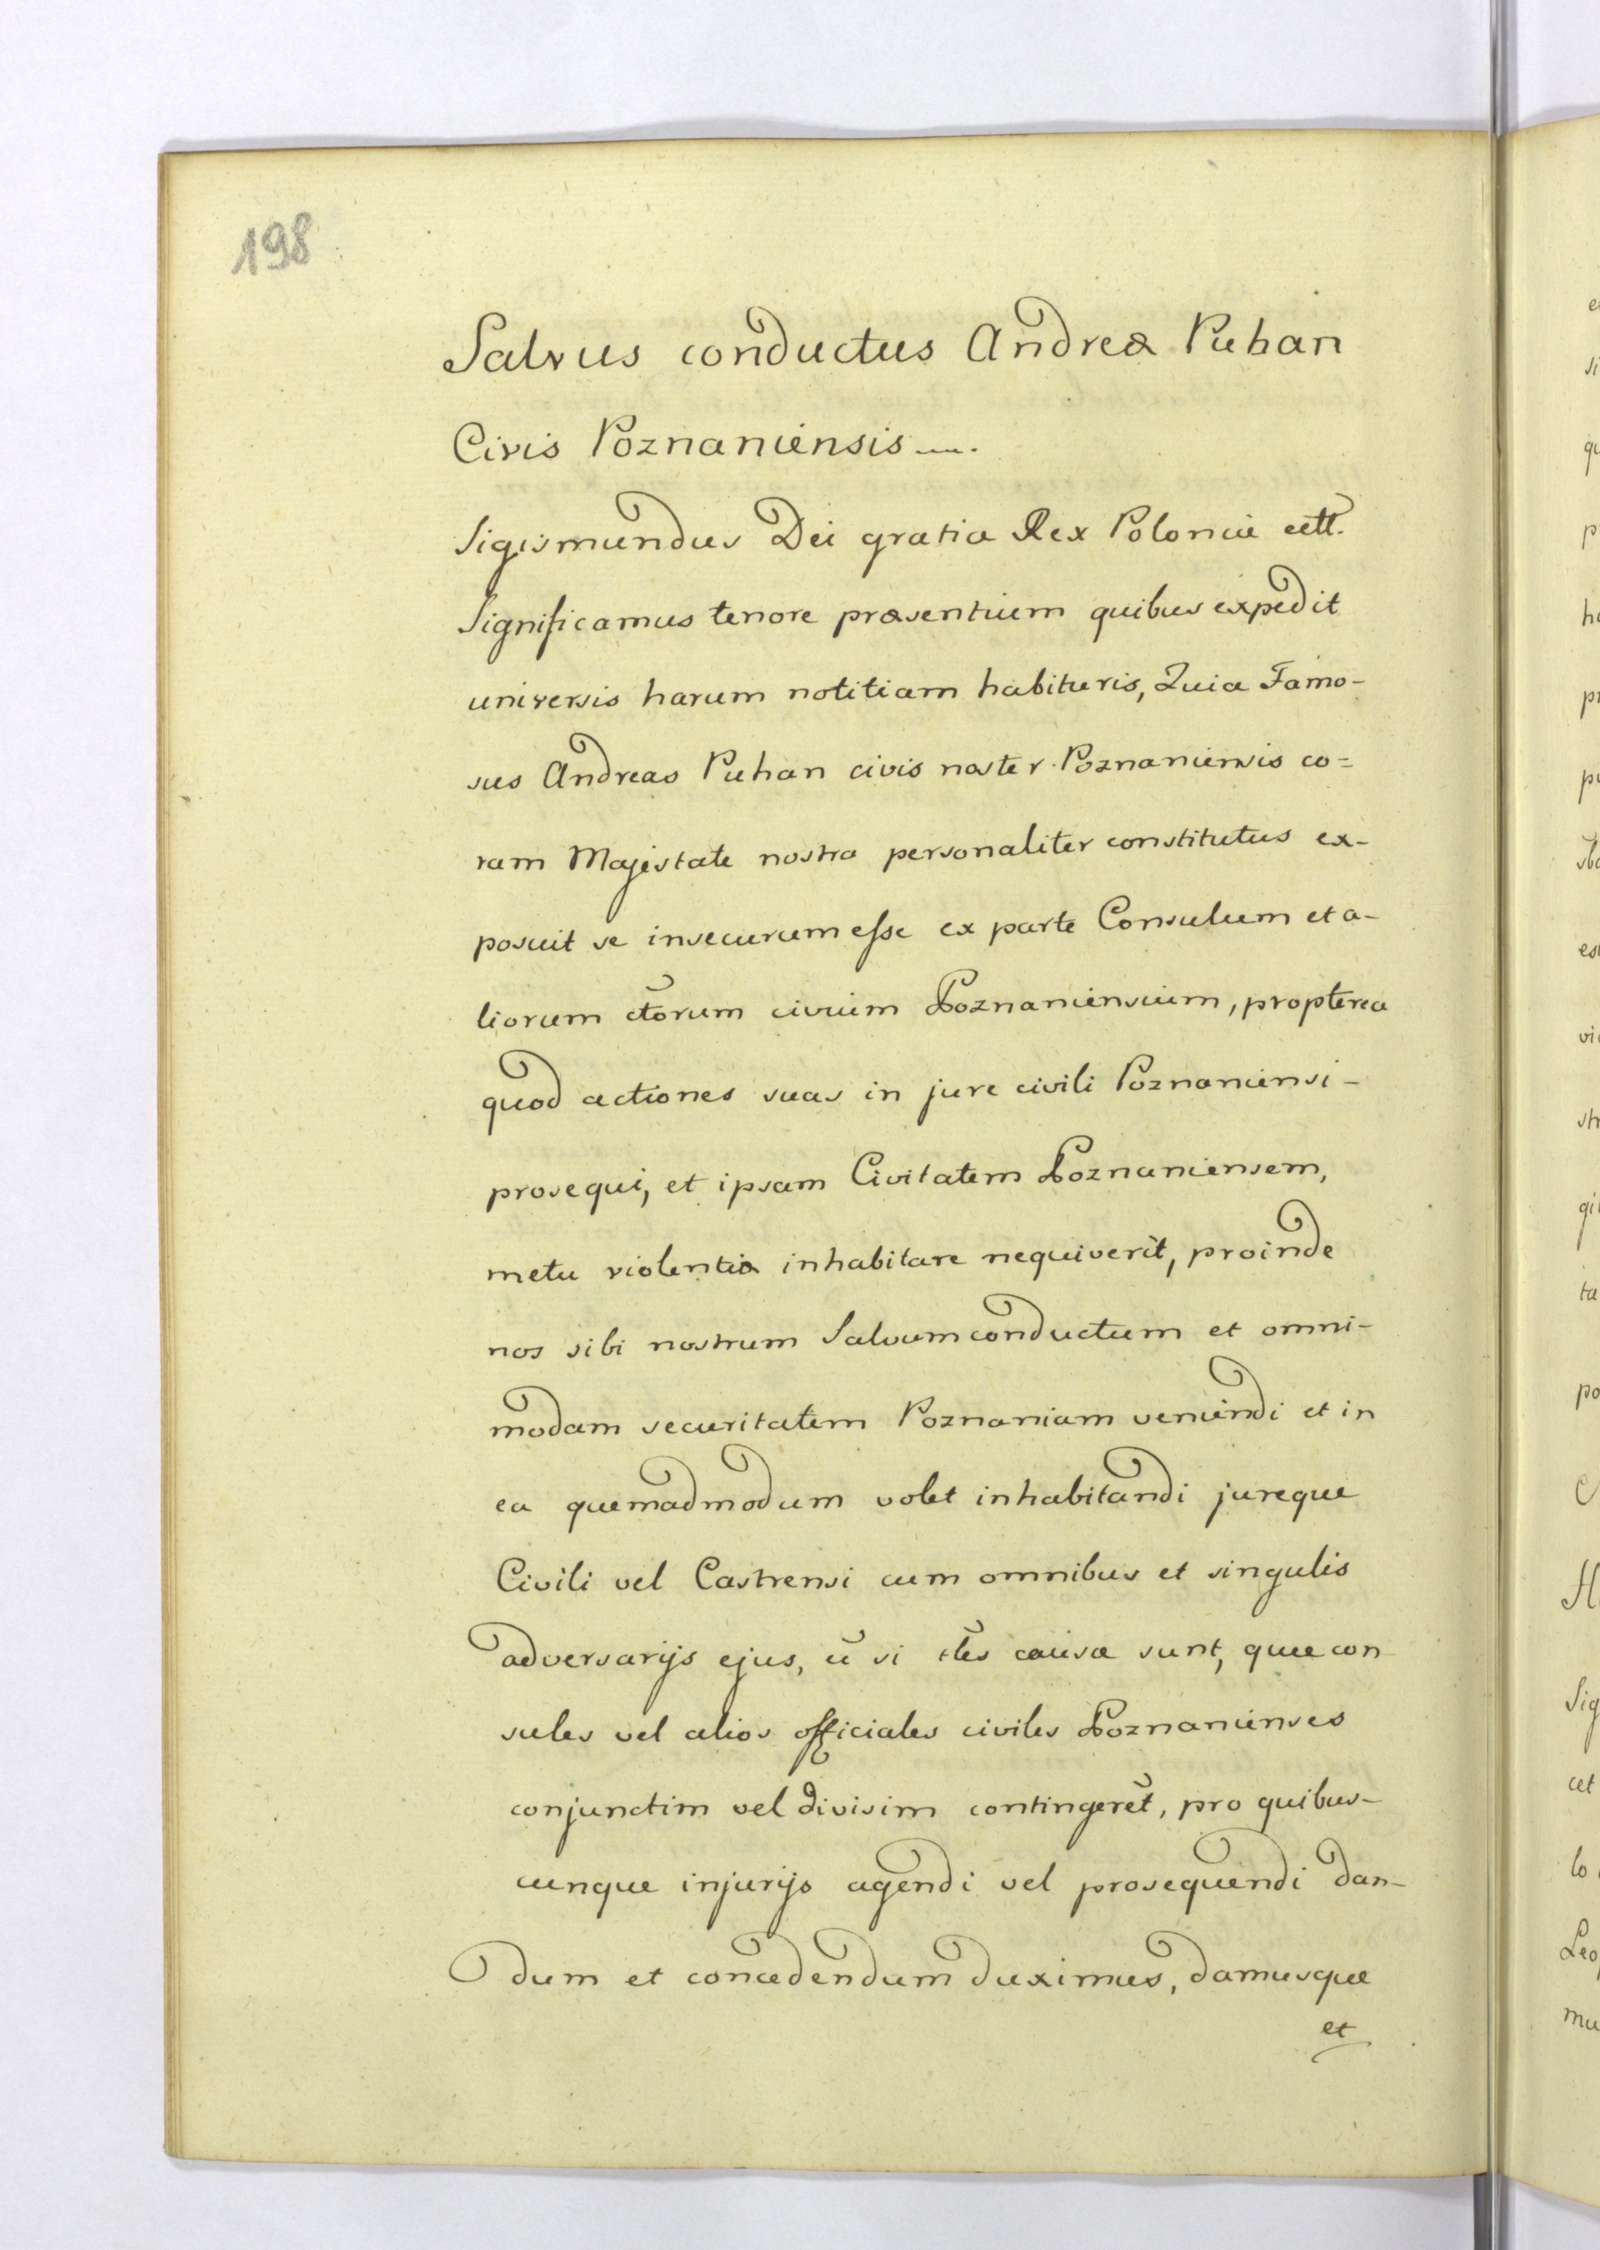 198
Salvus conductus Andreæ Puhan
Civis Poznaniensis
Sigismundus Dei gratia Rex Poloniæ cett.
Significamus tenore præsentium quibus expedit
universis harum notitiam habituris, Quia Famo-
sus Andreas Puhan civis noster Poznaniensis co=
ram Majestate nostra personaliter constitutus ex-
posuit se insecurum esse ex parte Consulum et a-
liorum cto̅rum civium Poznaniensium, propterea
quod actiones suas in jure civili Poznaniensi-
prosequi, et ipsam Civitatem Poznaniensem,
metu violentiæ inhabitare nequiverit, proinde
nos sibi nostrum Salvumconductum et omni-
modam securitatem Poznaniam veniendi et in
ea quemadmodum volet inhabitandi jureque
Civili vel Castrensi cum omnibus et singulis
adversarijs ejus, u̅ si causæ sunt, quæ con
sules vel alios officiales civiles Poznanienses
conjunctim vel divisim contingere̅t, pro quibus-
cunque injurijs agendi vel prosequendi dan-
dum et concedendum duximus, damusque
et